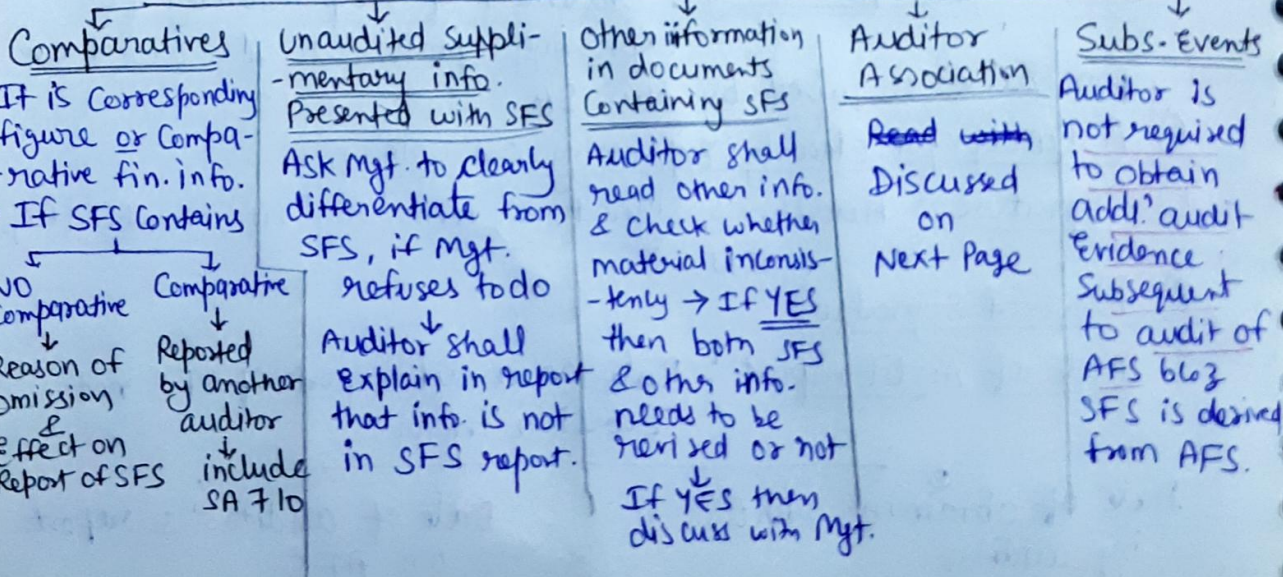 Comparatives
It is Corresponding
figure or Compa-
-rative fin. info.
If SFS Contains
NO
Comparative
↓
Reason of
omission
&
effect on
Report of SFS
Comparative
↓
Reported
by another
auditor
↓
include
SA 710
Unaudited Suppli-
-mentary info.
Presented with SFS
Ask Mgt. to clearly
differentiate from
SFS, if Mgt.
refuses to do
↓
Auditor shall
explain in report
that info. is not
in SFS report.
Other information
in documents
Containing SFS
Auditor shall
read other info.
& Check whether
material inconsis-
-tency → If YES
then both SFS
& other info.
needs to be
revised or not
↓
If YES then
discuss with Mgt.
Auditor
Association
Read with
Discussed
on
Next Page
Subs. Events
Auditor is
not required
to obtain
addl. audit
Evidence
Subsequent
to audit of
AFS bcoz
SFS is derived
from AFS.